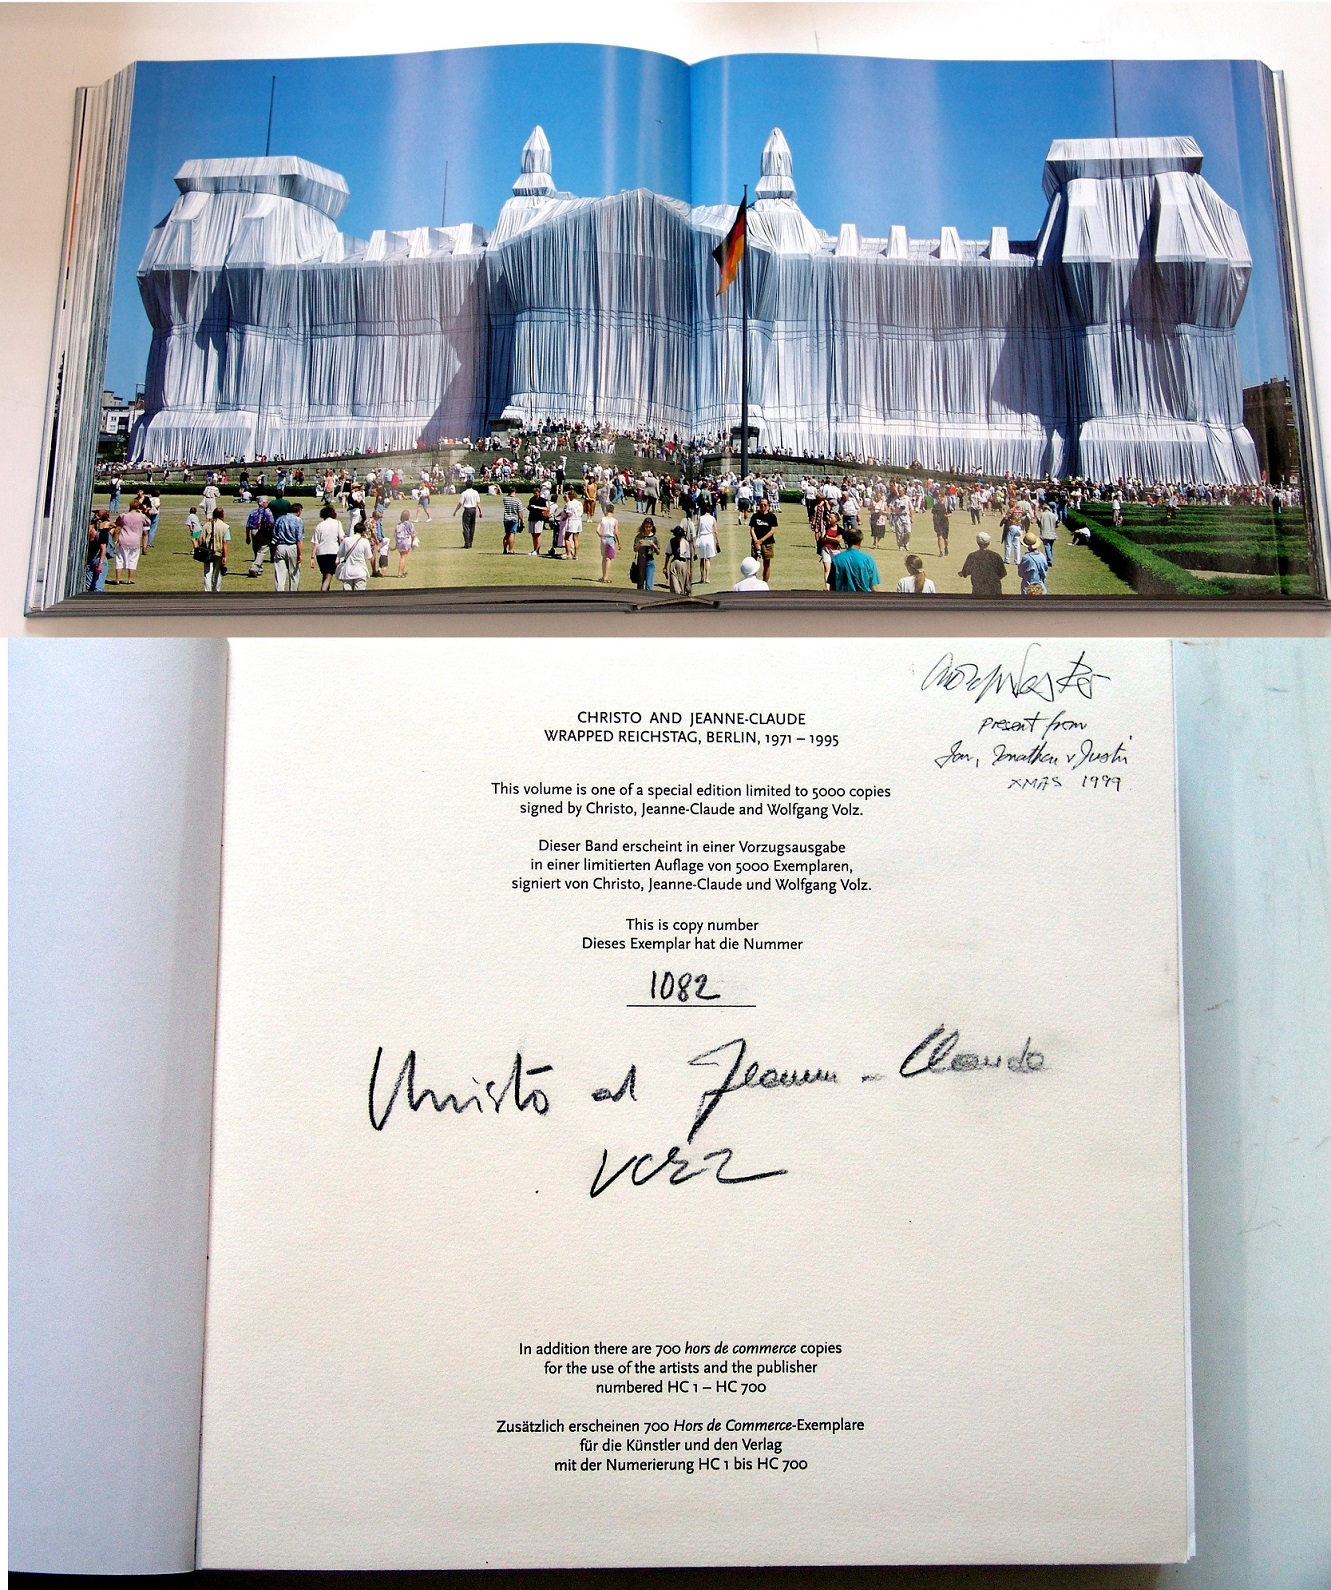 present from
Jan, Jonathan + Justin
XMAS 1999
CHRISTO AND JEANNE-CLAUDE
WRAPPED REICHSTAG, BERLIN, 1971 – 1995
This volume is one of a special edition limited to 5000 copies
signed by Christo, Jeanne-Claude and Wolfgang Volz.
Dieser Band erscheint in einer Vorzugsausgabe
in einer limitierten Auflage von 5000 Exemplaren,
signiert von Christo, Jeanne-Claude und Wolfgang Volz.
This is copy number
Dieses Exemplar hat die Nummer
1082
Christo and Jeanne-Claude
VOLZ
In addition there are 700 hors de commerce copies
for the use of the artists and the publisher
numbered HC 1 – HC 700
Zusätzlich erscheinen 700 Hors de Commerce-Exemplare
für die Künstler und den Verlag
mit der Numerierung HC 1 bis HC 700